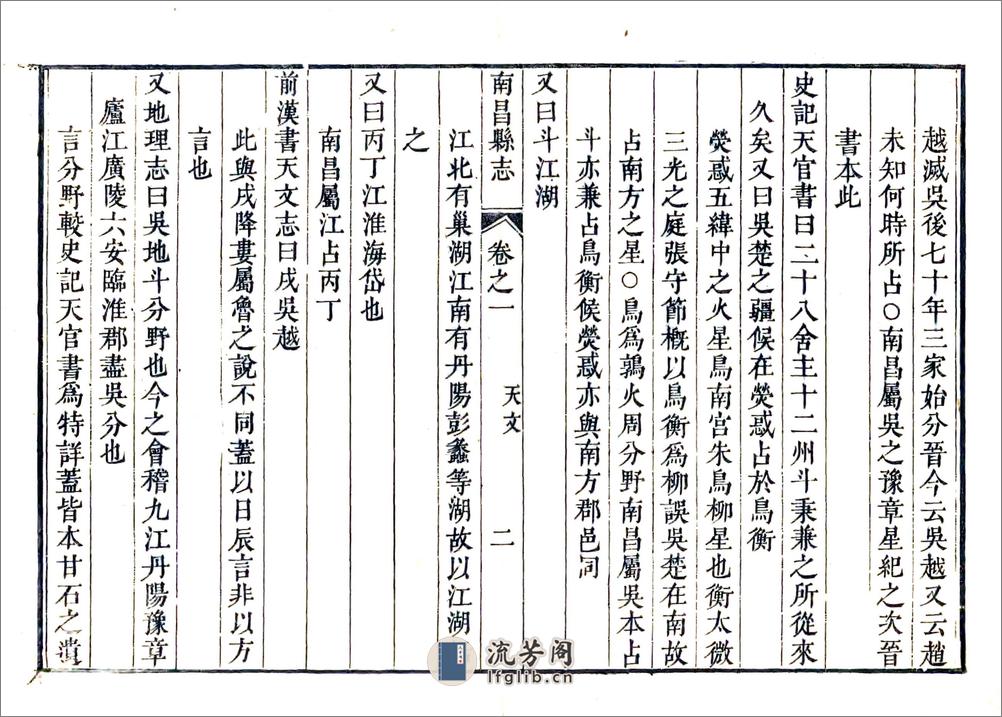 越滅吳後七十年三家始分晉今云吳越又云趙
未知何時所占○南昌屬吳之豫章星紀之次晉
書本此
史記天官書曰二十八舍主十二州斗秉兼之所從來
久矣又曰吳楚之疆候在熒惑占於鳥衡
熒惑五緯中之火星鳥南宮朱鳥柳星也衡太微
三光之庭張守節槪以鳥衡爲柳誤吳楚在南故
占南方之星○鳥爲鶉火周分野南昌屬吳本占
斗亦兼占鳥衡候熒惑亦與南方郡邑同
又曰斗江湖
南昌縣志
卷之一
天文
二
江北有巢湖江南有丹陽彭蠡等湖故以江湖
之
又曰丙丁江淮海岱也
南昌屬江占丙丁
前漢書天文志曰戌吳越
此與戌降婁屬魯之說不同蓋以日辰言非以方
言也
又地理志曰吳地斗分野也今之會稽九江丹陽豫章
廬江廣陵六安臨淮郡盡吳分也
言分野較史記天官書爲特詳蓋皆本甘石之遺
流芳阁
lfglib.cn